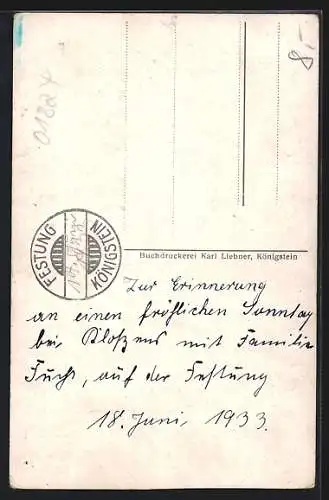 8,-
01824
FESTUNG
KÖNIGSTEIN
Buchdruckerei Karl Liebner, Königstein
Zur Erinnerung
an einen fröhlichen Sonntag
bei mit Familie
Fuchs, auf der Festung
18. Juni, 1933.